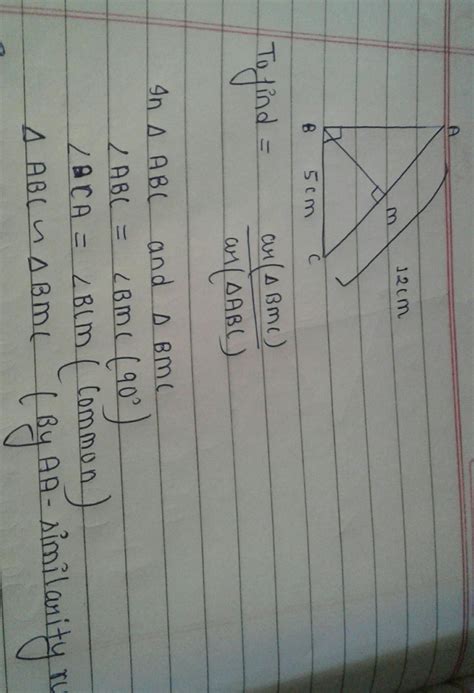 A
M
12cm
B
5cm
C
To find = ar(ΔBMC)
ar(ΔABC)
In Δ ABC and Δ BMC
∠ABC = ∠BMC (90°)
∠BCA = ∠BCM (Common)
Δ ABC ∽ Δ BMC (By AA-similarity ru